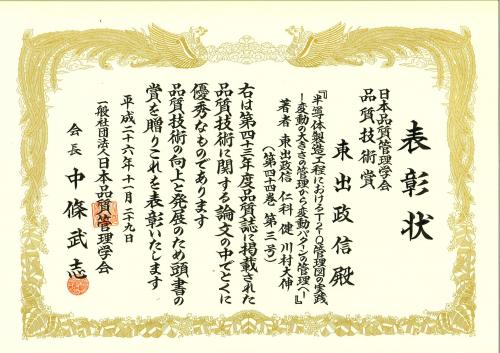 表彰状
日本品質管理学会
品質技術賞
東出政信 殿
『半導体製造工程におけるT2-Q管理図の実践
－変動の大きさの管理から変動パターンの管理へ－』
著者 東出政信 仁科 健 川村大伸
(第四十四巻 第三号)
右は第四十三年度品質誌に掲載された
品質技術に関する論文の中でとくに
優秀なものであります
品質技術の向上と発展のため頭書の
賞を贈りこれを表彰いたします
平成二十六年十一月二十九日
一般社団法人日本品質管理学会
会長 中條武志